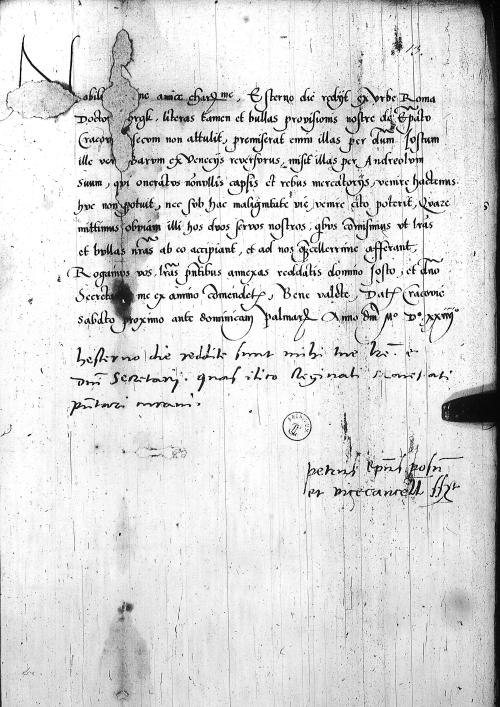 13
Nobilis ne amice char̃me, Esterno die redijt ex vrbe Roma
Docto hrgk, literas tamen et bullas prouisionis nostre de Ep̃atu
Cracoui secum non attulit, premiserat enim illas per dñm Jostum
ille ve Barum ex Venecijs reuersurus, misit illas per Andreolum
suum, qui oneratus nonnullis capsis et rebus mercatorijs, venire hactenus
huc non potuit, nec sub hac malignitate vie venire cito poterit, Quare
mittimus obuiam illi hos duos seruos nostros, qbus comisimus vt l̃ras
et bullas nr̃as ab eo accipiant, et ad nos q̃cellerrime afferant,
Rogamus vos, l̃ras p̃ntibus annexas reddatis domino Josto, et dño
Secreta me ex animo comendet, Bene valete, Dat Cracouie
sabbto proximo ante dominicam Palmar Anno dñi Mo Do xxiiijo
hesterno die reddite sunt mihi tue l̃re e
dñi Secretarij quas ilico Reginali
petrus ep̃us posñ
et vicecancell